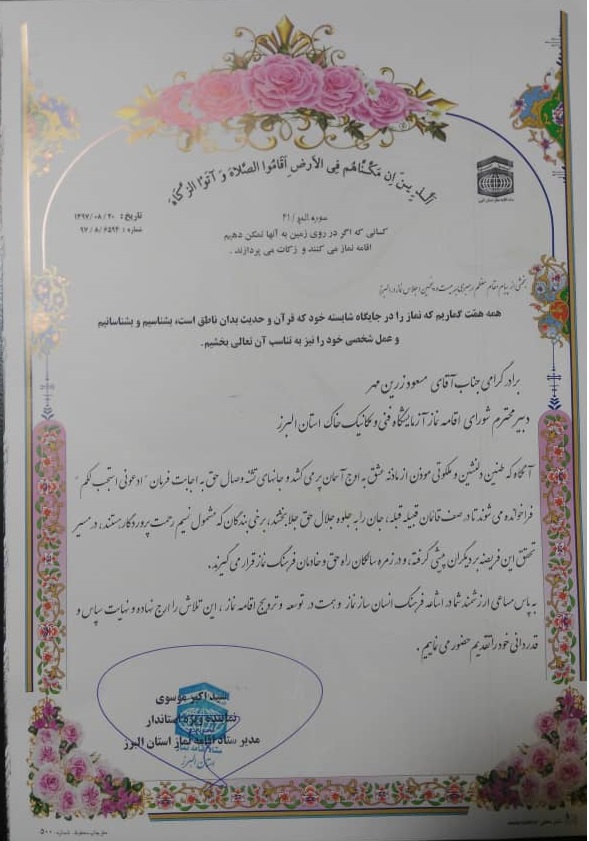 الَّذِينَ إِن مَكَّنَّاهُم فِی الأَرضِ أَقَامُوا الصَّلاةَ وَ آتَوُا الزَّكَاةَ
تاریخ : ۱۳۹۷/۰۸/۲۰
شماره : ۹۷/۸/۶۵۹۴
سوره الحج/۴۱
کسانی که اگر در روی زمین به آنها تمکن دهیم
اقامه نماز می کنند و زکات می پردازند .
بخشی از پیام مقام معظم رهبری به بیست و پنجمین اجلاس نماز در البرز
همه همّت گماریم که نماز را در جایگاه شایسته خود که قرآن و حدیث بدان ناطق است، بشناسیم و بشناسانیم
و عمل شخصی خود را نیز به تناسب آن تعالی بخشیم.
برادر گرامی جناب آقای مسعود زرین مهر
دبیر محترم شورای اقامه نماز آزمایشگاه فنی و مکانیک خاک استان البرز
آنگاه که طنین دلنشین و ملکوتی موذن از ماذنه عشق به اوج آسمان پر می کشد و جانهای تشنه وصال حق به اجابت فرمان "ادعونی استجب لکم"
فراخوانده می شوند تا در صف قائمان قبیله قبله، جان را به جلوه جلال حق جلا بخشند، برخی بندگان که مشمول نسیم رحمت پروردگار هستند، در مسیر
تحقق این فریضه بر دیگران پیشی گرفته، و در زمره سالکان راه حق و خادمان فرهنگ نماز قرار می گیرند.
به پاس مساعی ارزشمند شما در اشاعه فرهنگ انسان ساز نماز و همت در توسعه و ترویج اقامه نماز ، این تلاش را ارج نهاده و نهایت سپاس و
قدردانی خود را تقدیم حضور می نماییم .
سید اکبر موسوی
نماینده ویژه استاندار
مدیر ستاد اقامه نماز استان البرز
ستاد اقامه نماز
استان البرز
حق چاپ محفوظ شماره: ۵۰۰